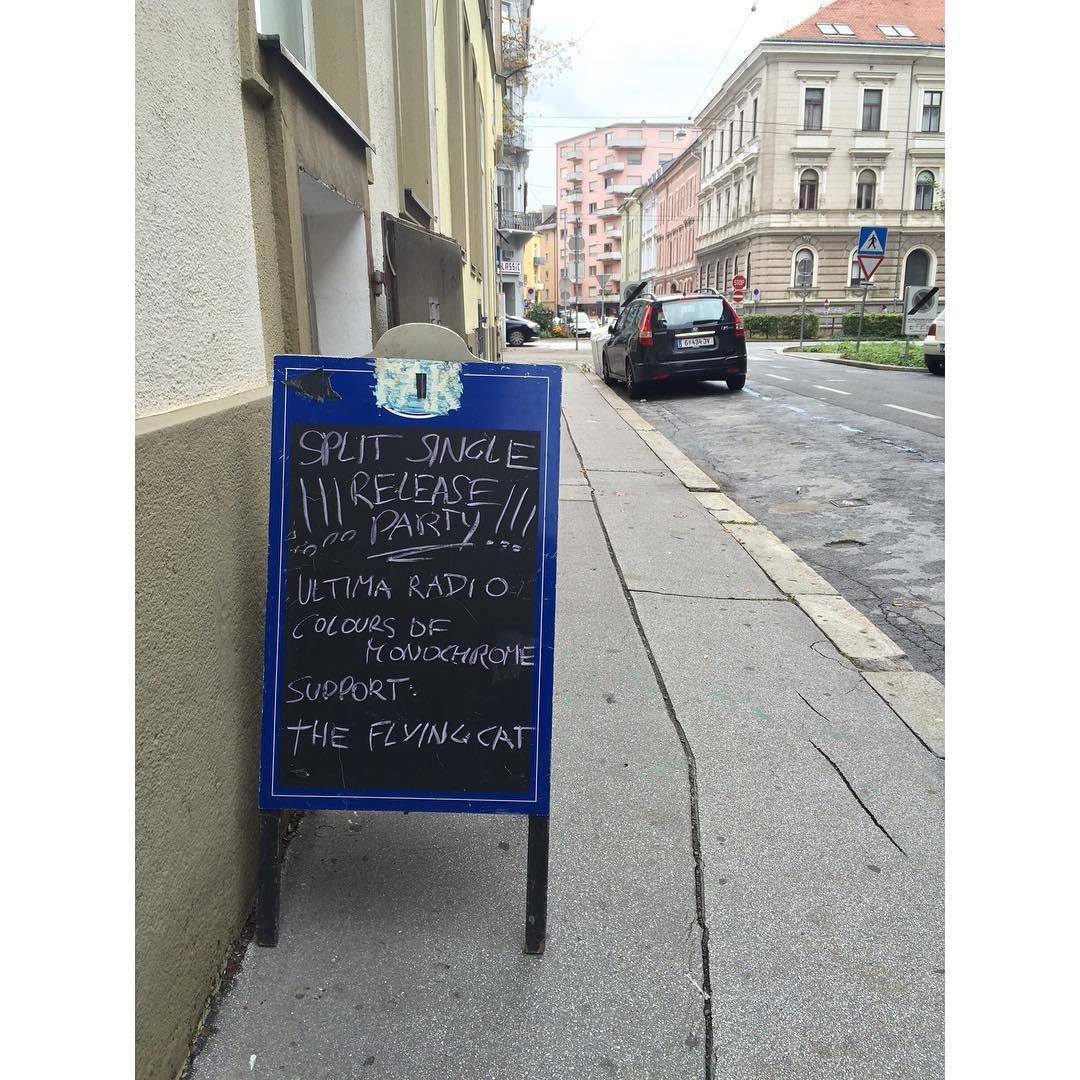 SPLIT SINGLE
!!! RELEASE
PARTY !!!
ULTIMA RADIO
COLOURS OF
MONOCHROME
SUPPORT:
THE FLYING CAT
CLASSIC
STOP
G 494 JV